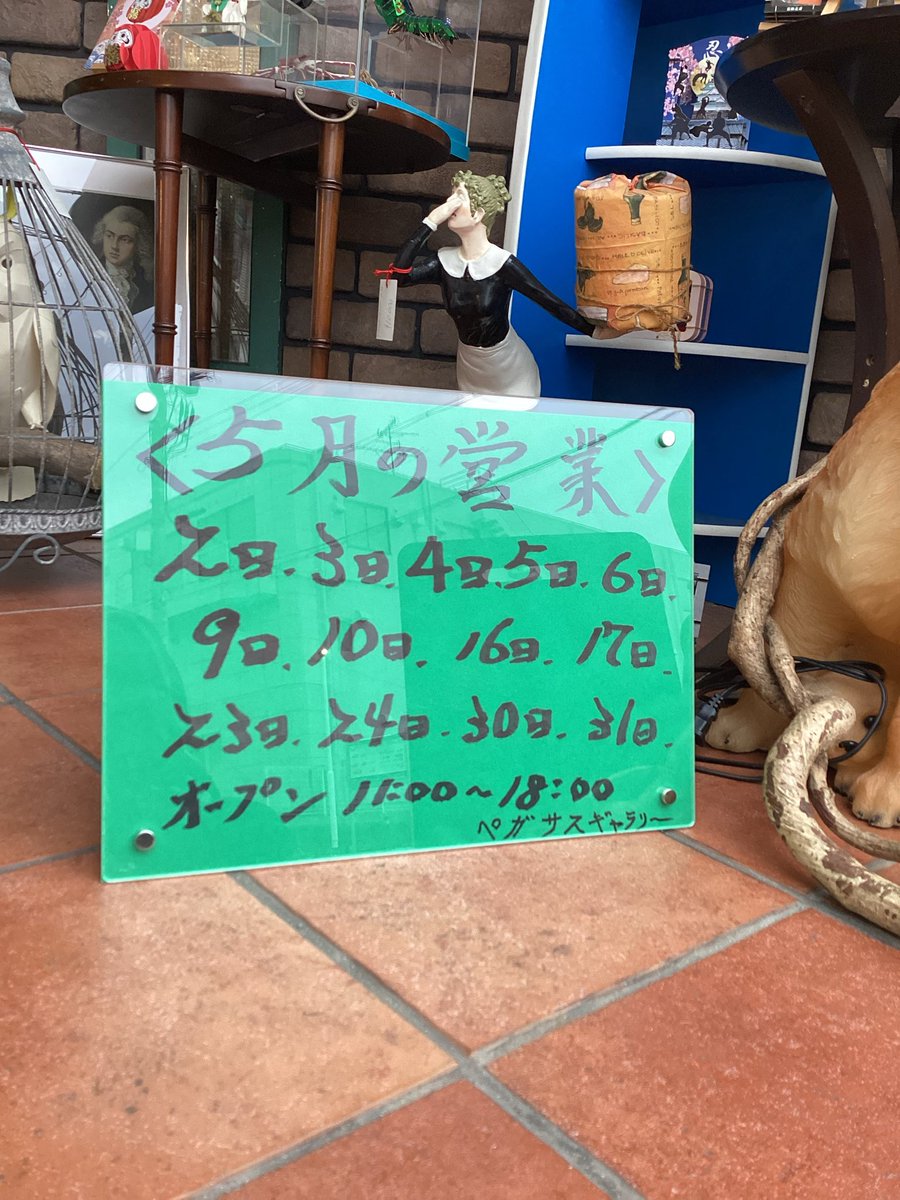 忍者
〈5月の営業〉
2日. 3日. 4日. 5日. 6日.
9日. 10日. 16日. 17日.
23日. 24日. 30日. 31日.
オープン 11:00～18:00
ペガサスギャラリー